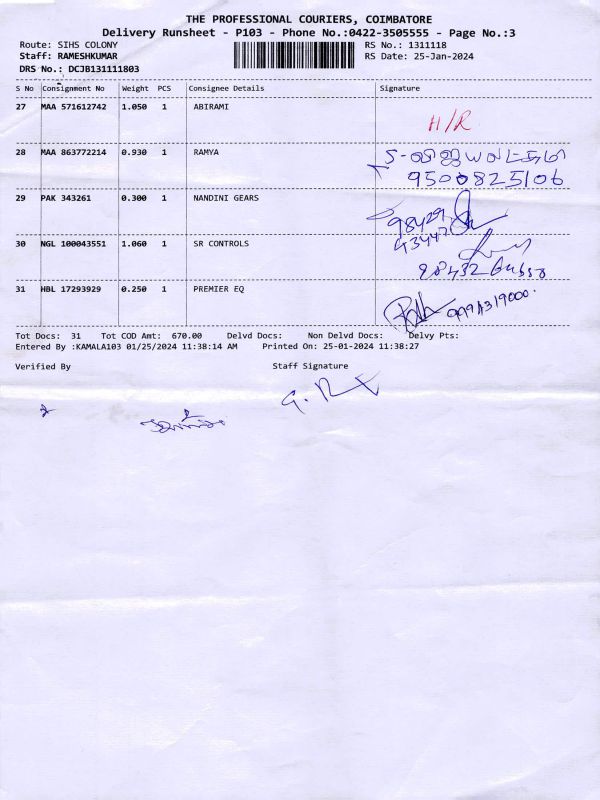 THE PROFESSIONAL COURIERS, COIMBATORE
Delivery Runsheet - P103 - Phone No.:0422-3505555 - Page No.:3
Route: SIHS COLONY RS No.: 1311118
Staff: RAMESHKUMAR RS Date: 25-Jan-2024
DRS No.: DCJB131111803
S No Consignment No Weight PCS Consignee Details Signature
27 MAA 571612742 1.050 1 ABIRAMI H/R
28 MAA 863772214 0.930 1 RAMYA
9500825106
29 PAK 343261 0.300 1 NANDINI GEARS 98429
43447
30 NGL 100043551 1.060 1 SR CONTROLS
31 HBL 17293929 0.250 1 PREMIER EQ
Tot Docs: 31 Tot COD Amt: 670.00 Delvd Docs: Non Delvd Docs: Delvy Pts:
Entered By :KAMALA103 01/25/2024 11:38:14 AM Printed On: 25-01-2024 11:38:27
Verified By Staff Signature